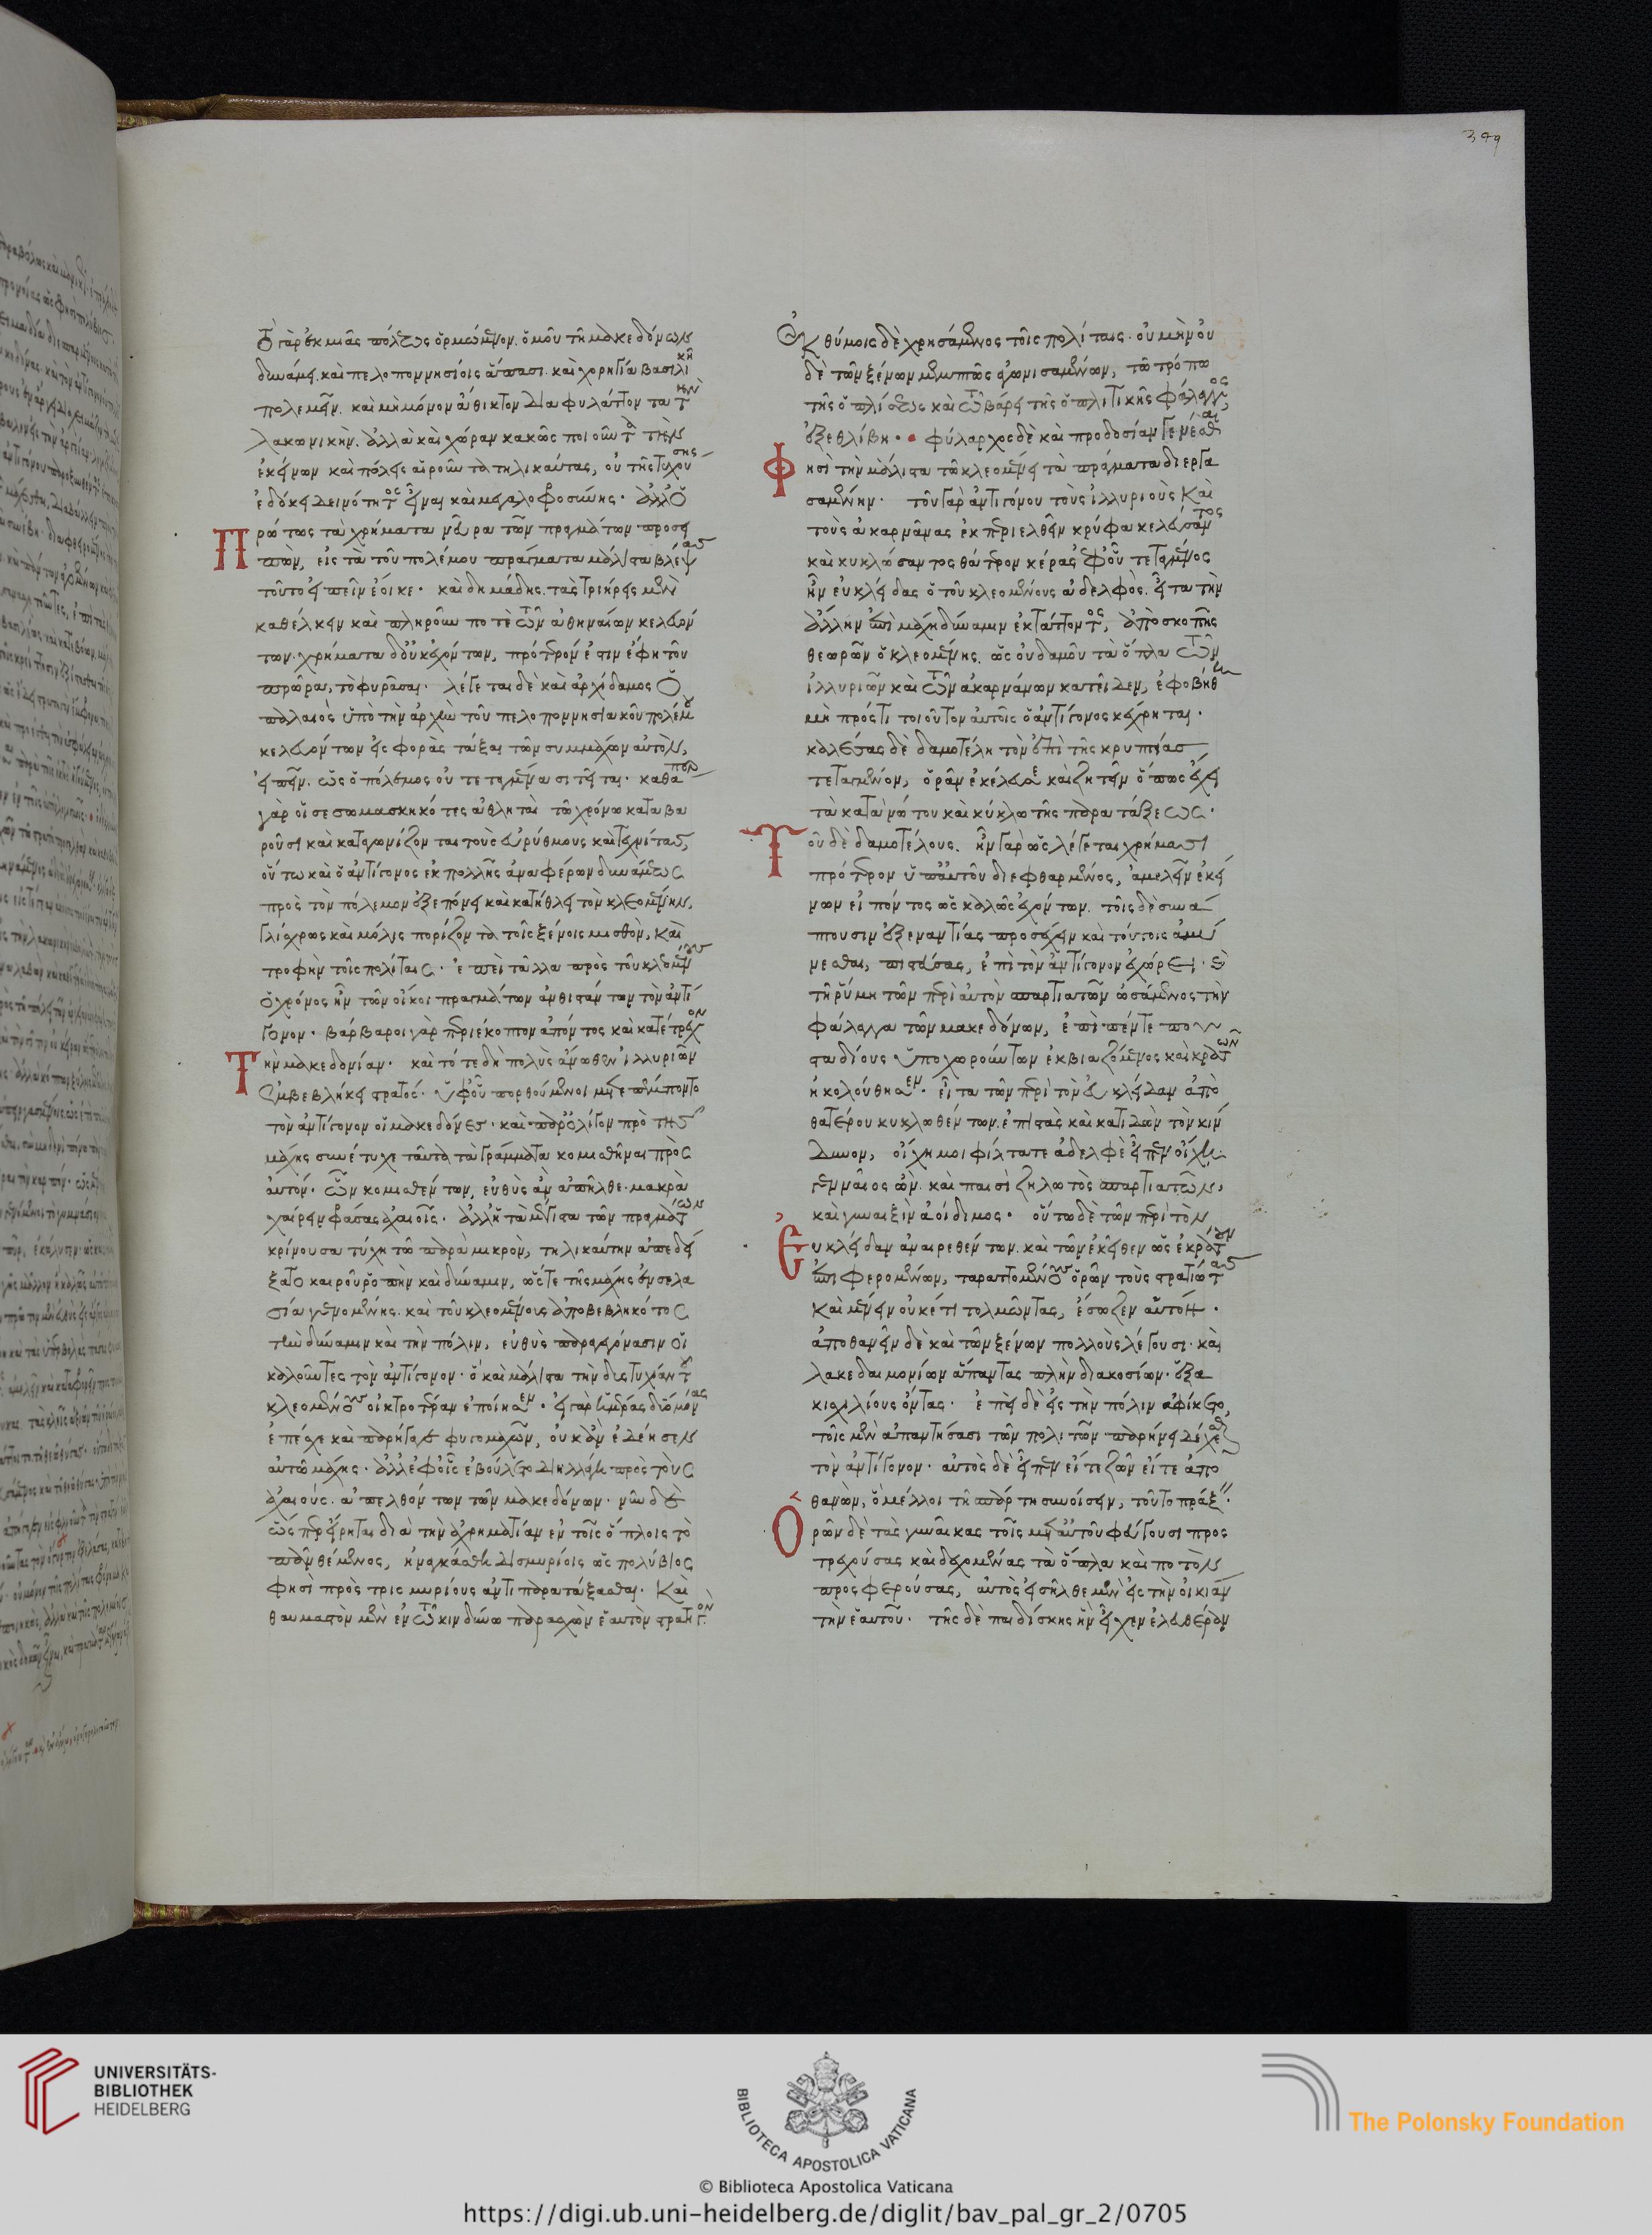 Ὁ γὰρ ἐκ μιᾶς πόλεως ὁρμώμενον. ὁμοῦ τῆ μακεδόνων
δυνάμει. καὶ πελοποννησίοις ἅπασι. καὶ χορηγία βασιλικῆ
πολεμεῖν. καὶ μὴ μόνον ἄθικτον διαφυλάττοντα τὴν
λακωνικὴν. ἀλλὰ καὶ χώραν κακῶς ποιοῦντα τὴν
ἐκείνων καὶ πόλεις αἱροῦντα τηλικαύτας, οὐ τῆς τυχούσης
ἐδόκει δεινότητος εἶναι καὶ μεγαλοφροσύνης. ἀλλ' ὁ
Πρώτως τὰ χρήματα νεῦρα τῶν πραγμάτων προσει
πὼν, εἰς τὰ τοῦ πολέμου πράγματα μάλιστα βλέψας
τοῦτο εἰπεῖν ἔοικε. καὶ δημάδης. τὰς τριήρεις μὲν
καθέλκειν καὶ πληροῦν ποτὲ τῶν ἀθηναίων κελευόν
των. χρήματα δ' οὐκ ἐχόντων, πρότερόν ἐστιν ἔφη τοῦ
πρωρᾶσαι, τὸ φυρᾶσαι. λέγεται δὲ καὶ ἀρχίδαμος ὁ
παλαιὸς ὑπὸ τὴν ἀρχὴν τοῦ πελοποννησιακοῦ πολέμου
κελευόντων εἰσφορὰς τάξαι τῶν συμμάχων αὐτὸν,
εἰπεῖν. ὡς ὁ πόλεμος οὐ τεταγμένα σιτεῖται. καθάπερ
γὰρ οἱ σεσωμασκηκότες ἀθληταὶ τῶ χρόνω καταβα
ροῦσι καὶ καταγωνίζονται τοὺς εὐρύθμους καὶ τεχνίτας,
οὕτω καὶ ὁ ἀντίγονος ἐκ πολλῆς ἀναφέρων δυνάμεως
πρὸς τὸν πόλεμον ἐξεπόνει καὶ κατήθλει τὸν κλεομένην,
γλίσχρως καὶ μόλις πορίζοντα τοῖς ξένοις μισθὸν, καὶ
τροφὴν τοῖς πολίταις. ἐπεὶ τἄλλα πρὸς τοῦ κλεομένους
ὁ χρόνος ἦν τῶν οἴκοι πραγμάτων ἀνθιστάντων τὸν ἀντί
γονον. βάρβαροι γὰρ περιέκοπτον ἀπόντος καὶ κατέτρεχον
Τὴν μακεδονίαν. καὶ τότε δὴ πολὺς ἄνωθεν ἰλλυριῶν
ἐμβεβλήκει στρατός. ὑφ' οὗ πορθούμενοι μετεπέμποντο
τὸν ἀντίγονον οἱ μακεδόνες. καὶ παρ' ὀλίγον πρὸ τῆς
μάχης συνέτυχε ταῦτα τὰ γράμματα κομισθῆναι πρὸς
αὐτόν. ὧν κομισθέντων, εὐθὺς ἂν ἀπῆλθε. μακρὰ
χαίρειν φράσας ἀχαιοῖς. ἀλλ' ἡ τὰ μέγιστα τῶν πραγμάτων
κρίνουσα τύχη τῶ παρὰ μικρὸν, τηλικαύτην ἀπεδεί
ξατο καιροῦ ῥοπὴν καὶ δύναμιν, ὥστε τῆς μάχης ἐν σελα
σία γενομένης. καὶ τοῦ κλεομένους ἀποβεβληκότος
τὴν δύναμιν καὶ τὴν πόλιν, εὐθὺς παρεγένασιν οἱ
καλοῦντες τὸν ἀντίγονον. ὃ καὶ μάλιστα τὴν δυστυχίαν τοῦ
κλεομένους οἰκτροτέραν ἐποίησεν. εἰ γὰρ ἡμέρας δύο μόνας
ἐπέσχε καὶ παρήγαγε φυγομαχῶν, οὐκ ἂν ἐδέησεν
αὐτῶ μάχης. ἀλλ' ἐφ' οἷς ἐβούλετο διηλλάγη πρὸς τοὺς
ἀχαιούς. ἀπελθόντων τῶν μακεδόνων. νῦν δὲ
ὡς προείρηται διὰ τὴν ἀχρηματίαν ἐν τοῖς ὅπλοις τὸ
πᾶν θέμενος, ἠναγκάσθη δισμυρίοις ὡς πολύβιος
φησὶ πρὸς τρισμυρίους ἀντιπαρατάξασθαι. Καὶ
θαυμαστὸν μὲν ἐν τῶ κινδύνω παρασχὼν ἑαυτὸν στρατηγὸν.
Ἐκθύμοις δὲ χρησάμενος τοῖς πολίταις. οὐ μὴν οὐ
δὲ τῶν ξένων μεμπτῶς ἀγωνισαμένων, τῶ τρόπω
τῆς ὁπλίσεως καὶ τῶ βάρει τῆς ὁπλιτικῆς φάλαγγος,
ἐξεθλίβη. φύλαρχος δὲ καὶ προδοσίαν γενέσθαι
Φησὶ τὴν μάλιστα τῶ κλεομένει τὰ πράγματα διεργα
σαμένην. τοῦ γὰρ ἀντιγόνου τοὺς ἰλλυριοὺς Καὶ
τοὺς ἀκαρνᾶνας ἐκπεριελθεῖν κρύφα κελεύσαντος
καὶ κυκλώσαντος θάτερον κέρας ἐφ' οὗ τεταγμένος
ἦν εὐκλείδας ὁ τοῦ κλεομένους ἀδελφὸς. εἶτα τὴν
ἄλλην ἐπὶ μάχη δύναμιν ἐκτάττοντος, ἀπὸ σκοπῆς
θεωρῶν ὁ κλεομένης. ὡς οὐδαμοῦ τὰ ὅπλα τῶν
ἰλλυριῶν καὶ τῶν ἀκαρνάνων κατεῖδεν, ἐφοβήθη
μὴ πρός τι τοιοῦτον αὐτοῖς ὁ ἀντίγονος κέχρηται.
καλέσας δὲ δαμοτέλη τὸν ἐπὶ τῆς κρυπτείας
τεταγμένον, ὁρᾶν ἐκέλευσε καὶ ζητεῖν ὅπως ἔχει
τὰ κατὰ νώτου καὶ κύκλω τῆς παρατάξεως.
Τοῦ δὲ δαμοτέλους. ἦν γὰρ ὡς λέγεται χρήμασι
πρότερον ὑπ' αὐτοῦ διεφθαρμένος, ἀμελεῖν ἐκεί
νων εἰπόντος ὡς καλῶς ἐχόντων. τοῖς δὲ συνά
πτουσιν ἐξεναντίας προσέχειν καὶ τούτοις ἀμύ
νεσθαι, πιστεύσας, ἐπὶ τὸν ἀντίγονον ἐχώρει. καὶ
τῆ ῥύμη τῶν περὶ αὐτὸν σπαρτιατῶν ὠσάμενος τὴν
φάλαγγα τῶν μακεδόνων, ἐπὶ πέντε που
σταδίους ὑποχωρούντων ἐκβιαζόμενος καὶ κρατῶν
ἠκολούθησεν. εἶτα τῶν περὶ τὸν εὐκλείδαν ἀπὸ
θατέρου κυκλωθέντων. ἐπιστὰς καὶ κατιδὼν τὸν κίν
δυνον, οἴχη μοι φίλτατε ἀδελφὲ εἶπεν οἴχη.
γενναῖος ὢν. καὶ παισὶ ζηλωτὸς σπαρτιατῶν,
καὶ γυναιξὶν ἀοίδιμος. οὕτω δὲ τῶν περὶ τὸν
Εὐκλείδαν ἀναιρεθέντων. καὶ τῶν ἐκεῖθεν ὡς ἐκράτουν
ἐπιφερομένων, ταραττομένους ὁρῶν τοὺς στρατιώτας
καὶ μένειν οὐκέτι τολμῶντας, ἔσωζεν αὑτόν.
ἀποθανεῖν δὲ καὶ τῶν ξένων πολλοὺς λέγουσι. καὶ
λακεδαιμονίων ἅπαντας πλὴν διακοσίων. ἑξα
κισχιλίους ὄντας. ἐπεὶ δὲ εἰς τὴν πόλιν ἀφίκετο,
τοῖς μὲν ἀπαντήσασι τῶν πολιτῶν παρήνει δέχεσθαι
τὸν ἀντίγονον. αὐτὸς δὲ εἶπεν εἴτε ζῶν εἴτε ἀπο
θανὼν, ὃ μέλλοι τῆ σπάρτη συνοίσειν, τοῦτο πράξειν.
Ὁρῶν δὲ τὰς γυναῖκας τοῖς μετ' αὐτοῦ φεύγουσι προς
τρεχούσας καὶ δεχομένας τὰ ὅπλα καὶ ποτὸν
προσφερούσας, αὐτὸς εἰσῆλθε μὲν εἰς τὴν οἰκίαν
τὴν ἑαυτοῦ. τῆς δὲ παιδίσκης ἣν εἶχεν ἐλευθέραν
UNIVERSITÄTS-
BIBLIOTHEK
HEIDELBERG
BIBLIOTECA APOSTOLICA VATICANA
The Polonsky Foundation
© Biblioteca Apostolica Vaticana
https://digi.ub.uni-heidelberg.de/diglit/bav_pal_gr_2/0705